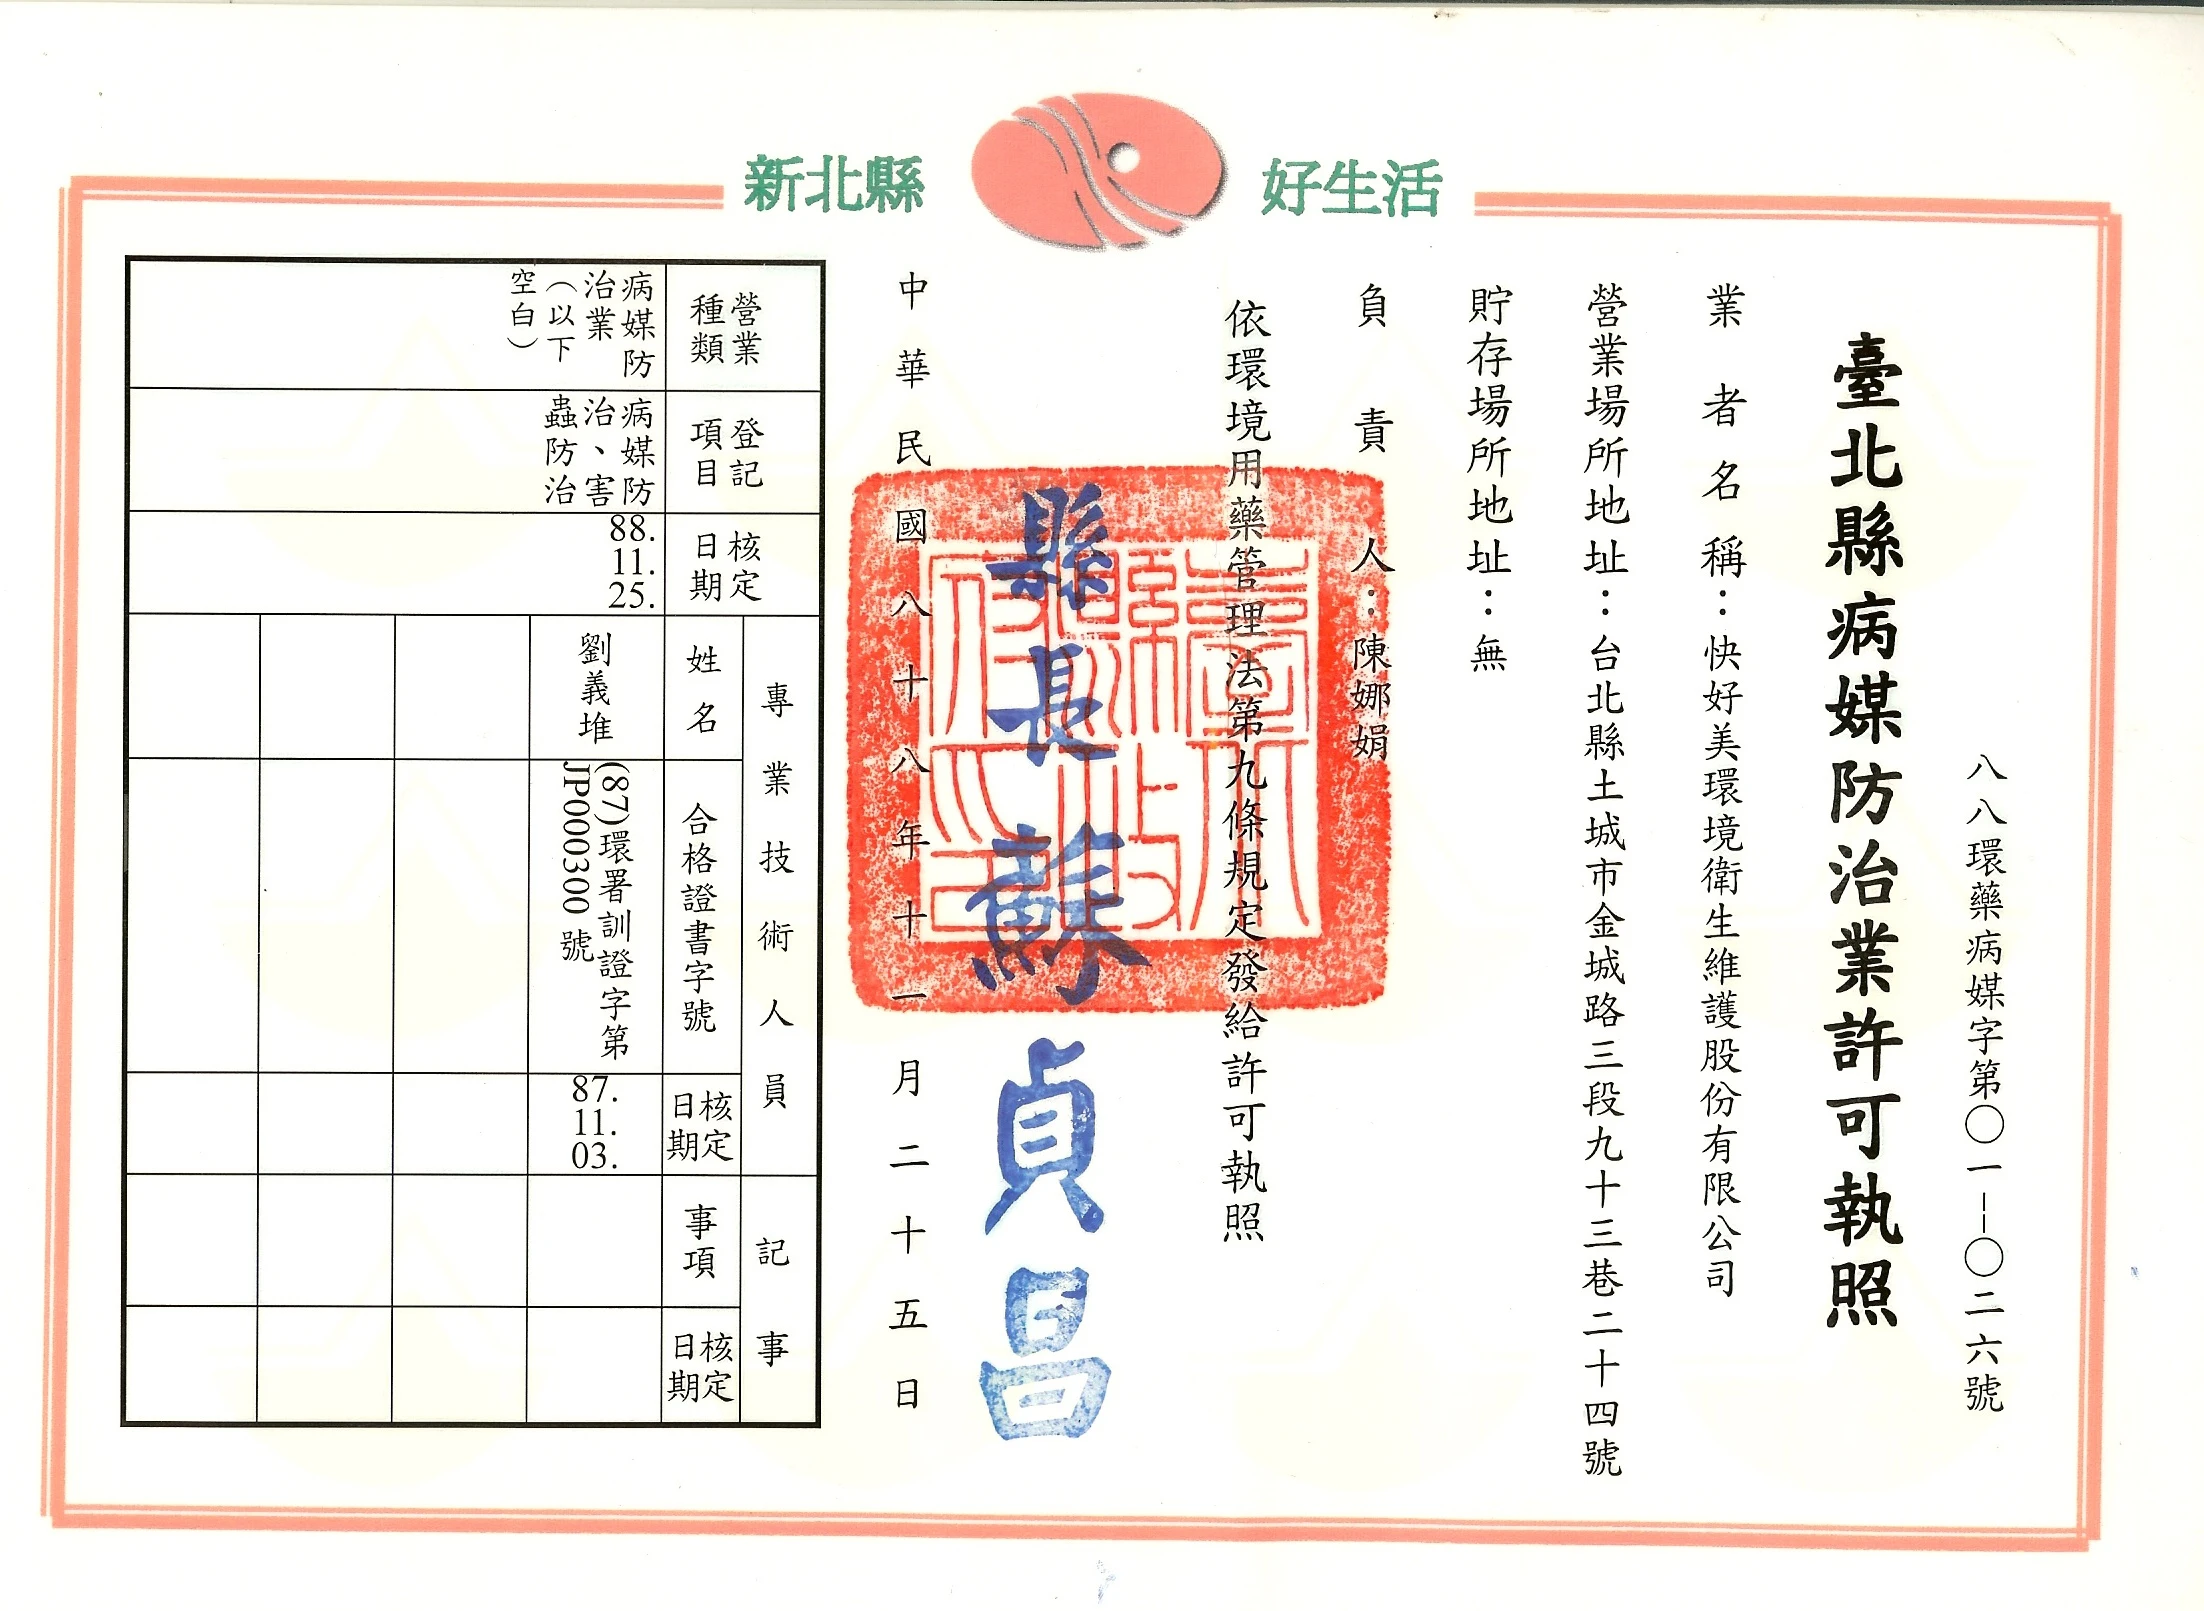 新北縣 好生活
八八環藥病媒字第〇一－〇二六號
臺北縣病媒防治業許可執照
業者名稱：快好美環境衛生維護股份有限公司
營業場所地址：台北縣土城市金城路三段九十三巷二十四號
貯存場所地址：無
負責人：陳娜娟
依環境用藥管理法第九條規定發給許可執照
臺北縣政府之印
縣長蘇貞昌
中華民國八十八年十一月二十五日
營業
種類
病媒防
治業
（以下
空白）
登記
項目
病媒防
治、害
蟲防治
核定
日期
88.
11.
25.
專業技術人員
姓名
劉義堆
合格證書字號
(87)環署訓證字第
JP000300號
核定
日期
87.
11.
03.
記事
事項
核定
日期